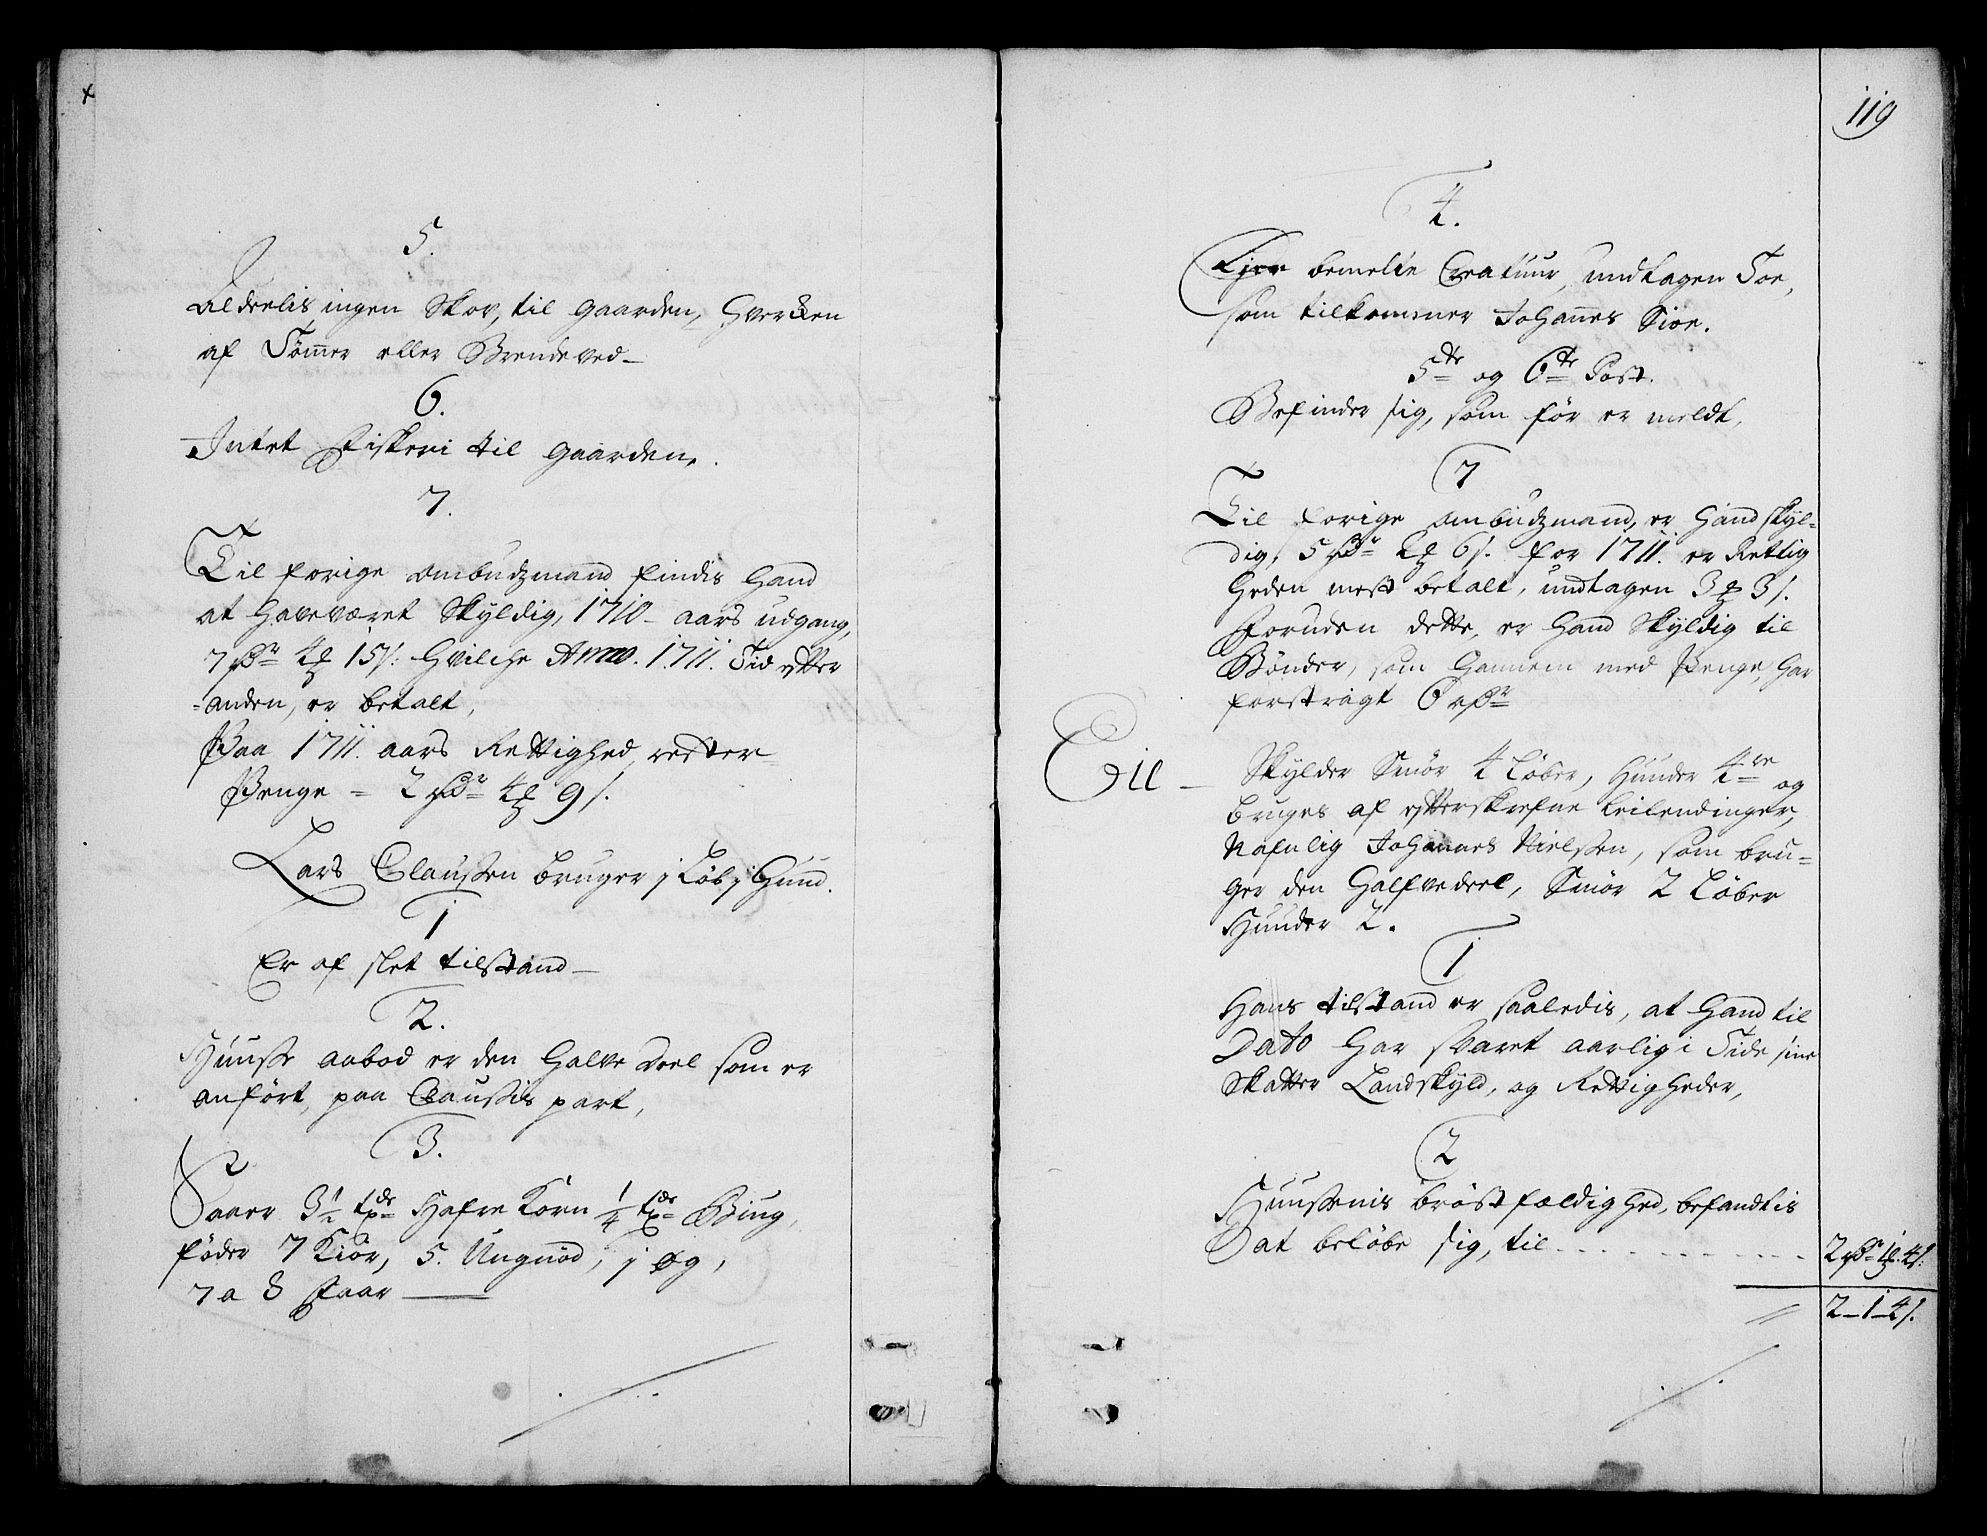 5.
Aldeelis ingen Skov, til gaarden, Hvercken
af Tømer eller Brendeved
6.
Intet Fiskeri til gaarden.
7.
Til forige ombudzmand findis Hand
at Haveværet Skyldig, 1710 - aars udgang,
7 rdr 4 15 s: Hvilche Anno. 1711. Tid efter
anden, er betalt,
Paa 1711. aars Rettighed, rester
Penge = 2 rdr 4 9 s.
Lars Claussen bruger j Løb j Hund.
1
Er af slet tilstand
2.
Huusse aabod er den Halve deel som er
anført, paa Claussis part,
3.
Saaer 3½ tdr Hafre Korn ¼ td Biug,
føder 7 Kiør, 5. Ungnød, j øg,
7 a 8 faar
119
4.
Eier bemelte Creatuur, undtagen Toe,
som tilkommer Johannes Sioe.
5te og 6te Post.
Befinder sig, som før er meldt,
7
Til forige ombudzmand, er Hand skyl-
dig, 5 rdr 2 6 s. for 1711. er Rettig
Heden mest betalt, undtagen 3 3 s.
Foruden dette, er Hand Skyldig til
Bønder, som Hannem med Penge, Har
forstragt 6 rdr
Eil - Skylder Smør 4 Løber, Hunder 4re og
bruges af efterskrefne Leilendinger,
Nafnlig Johannes Nielssen, som bru-
ger den Halfvedeel, Smør 2 Løber
Hunder 2.
1
Hans tilstand er saaledis, at Hand til
Dato Har svaret aarlig i Tide sine
Skatter Landskyld, og Rettigheder,
2
Huussenis brøstfældighed, befandtis
at beløbe sig, til 2 rdr 1. 4 s:
2 - 1 - 4 s.